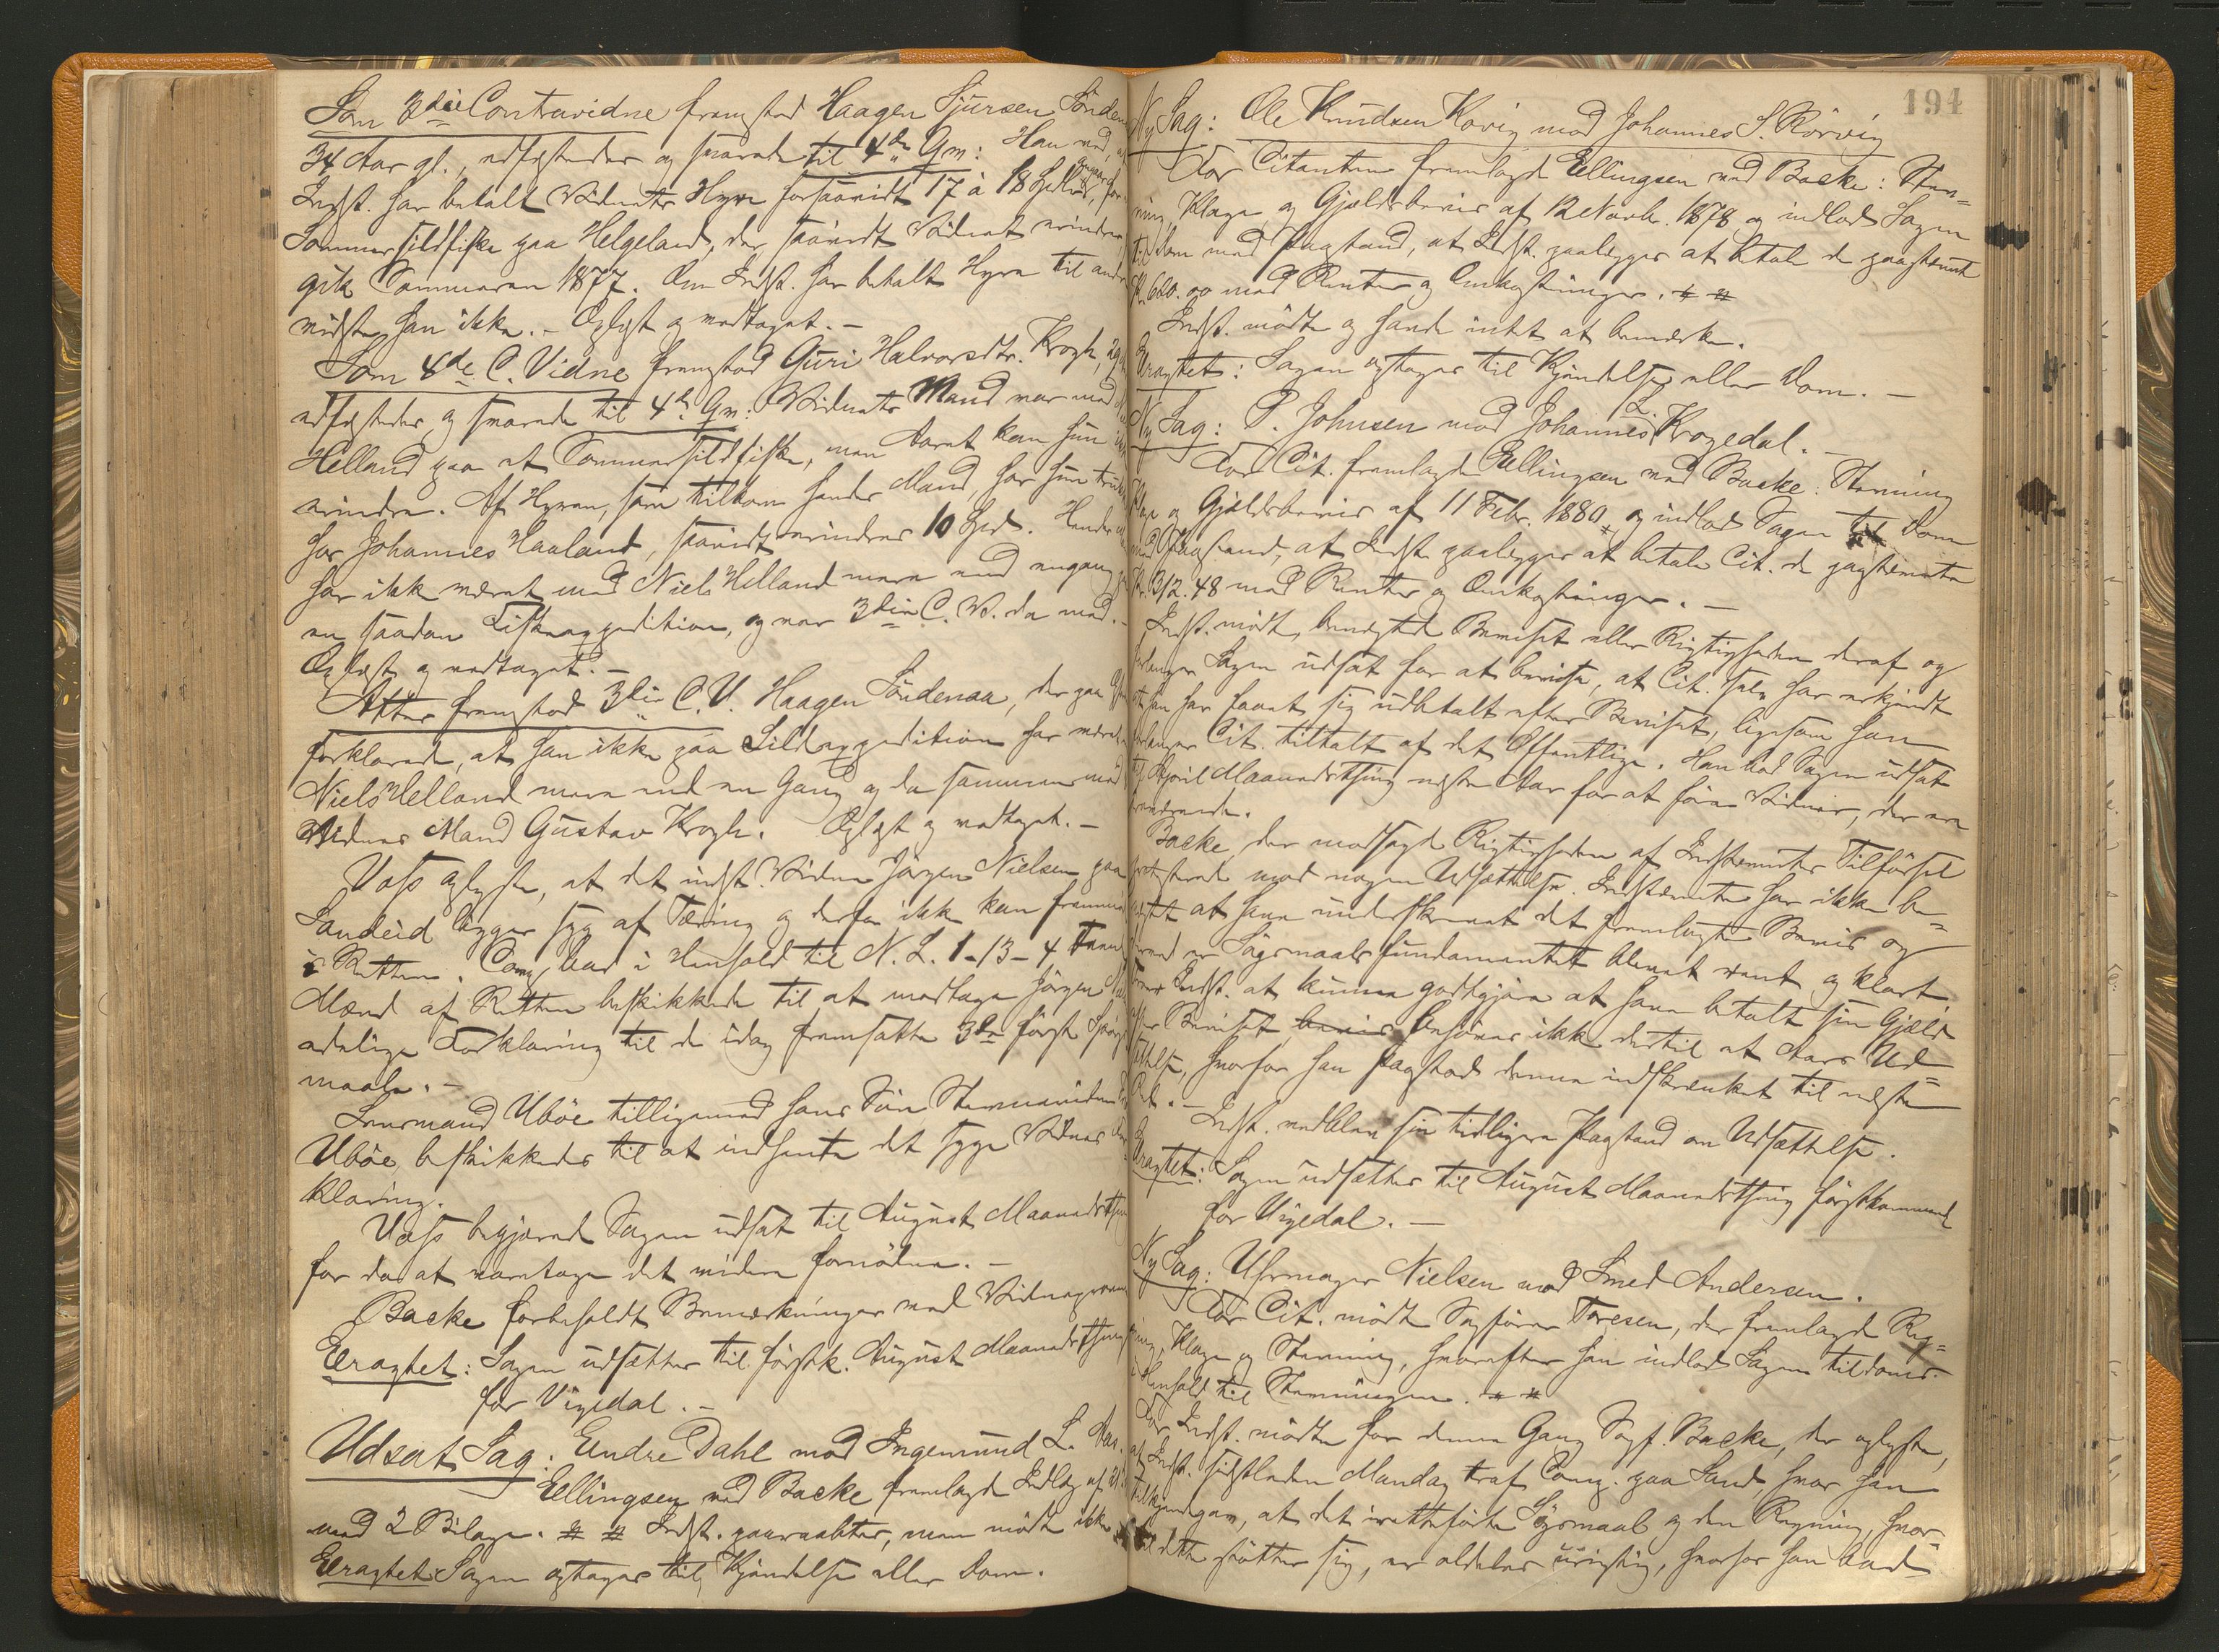 Som 3die Contravidne fremstod Haagen Sjursen Sönden
34 Aar gl., edfæstedes og svarede til 4de Qm: Han ved, at
Indst. har betalt Vidnets Hyre forsaavidt 17 à 18 Spdlr,
Sommersildfiske paa Helgeland, der, saavidt Vidnet erindrer,
gik Sommeren 1877. Om Indst. har betalt Hyre til andre
vidste han ikke. – Oplæst og vedtaget. –
Som 4de C. Vidne fremstod Guri Halvorsdtr. Krogh, 29
edfæstedes og svarede til 4de Qm: Vidnets Mand var med
Helland paa et Sommersildfiske, men Aaret kan hun
erindre. Af Hyren, som tilkom hendes Mand, har hun
hos Johannes Haaland, saavidt erindres 10 Spd. Hendes
har ikke været med Niels Helland mere end engang
en saadan Fiskeexpedition, og var 3die C. V. da med. –
Oplæst og vedtaget. –
Atter fremstod 3die C. V. Haagen Söndenaa, der paa
forklarede, at han ikke paa Sildexpedition har været
Niels Helland mere end en Gang og da sammen med
Vidnes Mand Gustav Krogh. Oplæst og vedtaget. –
Vass oplyste, at det indst. Vidne Jörgen Nielsen paa
Sandeid ligger syg af Tæring og derfor ikke kan fremme
i Retten. Comp. bad i Henhold til N. L. 1-13-4 Tvende
Mænd af Retten beskikkede til at modtage Jörgen
edelige Forklaring til de idag fremsatte 3de förste Spörgs
maal. –
Lensmand Uböe tilligemed hans Sön
Uböe beskikkedes til at indhente det syge Vidnes
klaring.
Vass begjærede Sagen udsat til August Maanedsthing
for da at varetage det videre fornödne. –
Backe forbeholdt Bemærkninger mod
Eragtet: Sagen udsættes til förstk. August Maanedsthing
for Vigedal. –
Udsat Sag: Endre Dahl mod Ingemund L. Aas.
Ellingsen ved Backe fremlagde Indlæg af
med 2 Bilage. # # Indst. paaraabtes, men mödte ikke
Eragtet: Sagen optages til Kjendelse eller Dom.
194
Ny Sag: Ole Knudsen Kovig mod Johannes S. Rörvig
For Citanten fremlagde Ellingsen ved Backe: Stev=
ning, Klage og Gjældsbevis af 12 Novbr. 1878 og indlod Sagen
til Dom med Paastand, at Indst. paalægges at betale de paastevnte
Kr. 620.00 med Renter og Omkostninger. # #
Indst. mödte og havde intet at bemærke.
Eragtet: Sagen optages til Kjendelse eller Dom. –
Ny Sag: P. Johnsen mod Johannes L. Krogedal. –
For Cit. fremlagde Ellingsen ved Backe: Stevning
Klage og Gjældsbevis af 11 Febr. 1880 og indlod Sagen til Dom
med Paastand, at Indst. paalægges at betale Cit. de paastevnte
Kr. 312.48 med Renter og Omkostninger. –
Indst. mödte, benegtede Beviset eller Rigtigheden deraf og
forlanger Sagen udsat for at bevise, at Cit. selv har erkjendt
at han har faaet sig udbetalt efter Beviset, ligesom han
forlanger Cit. tiltalt af det Offentlige. Han bad Sagen udsat
til April Maanedsthing næste Aar for at före Vidner, der ere
fraværende.
Backe, der modsagde Rigtigheden af Indstevntes Tilförsel
protesterede mod nogen Udsættelse. Indstævnte har ikke be=
negtet at have underskrevet det fremlagte Bevis og
dermed er Sögsmaalsfundamentet blevet rent og klart
troer Indst. at kunne godtgjöre at have betalt sin Gjæld
efter Beviset behöves ikke dertil et Aars Ud=
sættelse, hvorfor han paastod denne indskrænket til næste
Ret. –
Indst. vedblev sin tidligere Paastand om Udsættelse.
Eragtet: Sagen udsættes til August Maanedsthing förstkommende
for Vigedal. –
Ny Sag: Uhrmager Nielsen mod Smed Andersen.
For Cit. mödte Sagförer Toresen, der fremlagde Reg=
ning, Klage og Stevning, hvorefter han indlod Sagen tildoms
i Henhold til Stevningen. # #
For Indst. mödte for denne Gang Sagf. Backe, der oplyste,
at Indst. sidstleden Mandag traf Comp. paa Sand, hvor han
tilkjendegav, at det iretteförte Sögsmaal og den Regning, hvor=
til dette stötter sig, er aldeles urigtig, hvorfor han bad